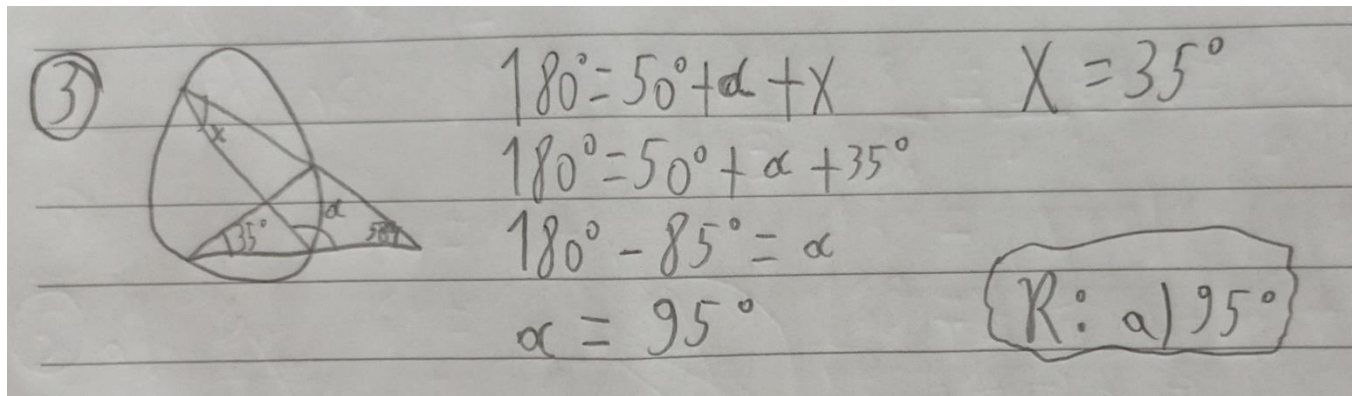 3
x
35°
α
50°
180° = 50° + α + X
180° = 50° + α + 35°
180° - 85° = α
α = 95°
X = 35°
R: a) 95°